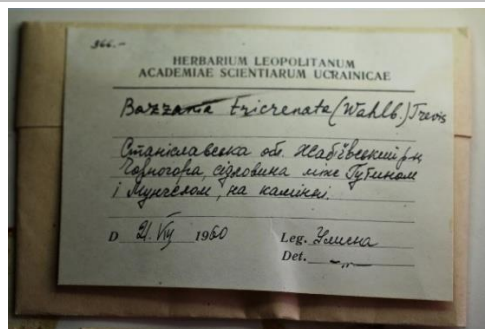 366.-
HERBARIUM LEOPOLITANUM
ACADEMIAE SCIENTIARUM UCRAINICAE
Bazzania tricrenata (Wahlb.) Trevis
Станіславська обл. Жабʼєвський р-н
Чорногора, сідловина між Гутином
і Мунчелом, на камінні.
D 21. VII 1960 Leg. Улична
Det. -„-